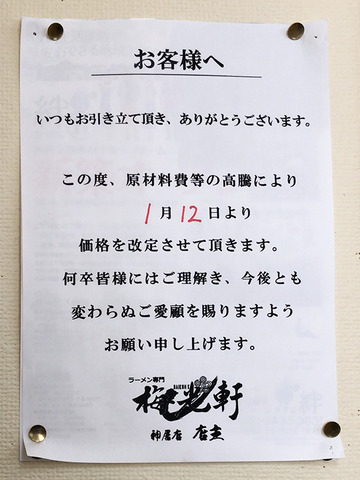 お客様へ
いつもお引き立て頂き、ありがとうございます。
この度、原材料費等の高騰により
1月12日より
価格を改定させて頂きます。
何卒皆様にはご理解き、今後とも
変わらぬご愛顧を賜りますよう
お願い申し上げます。
ラーメン専門
梅光軒
神居店 店主